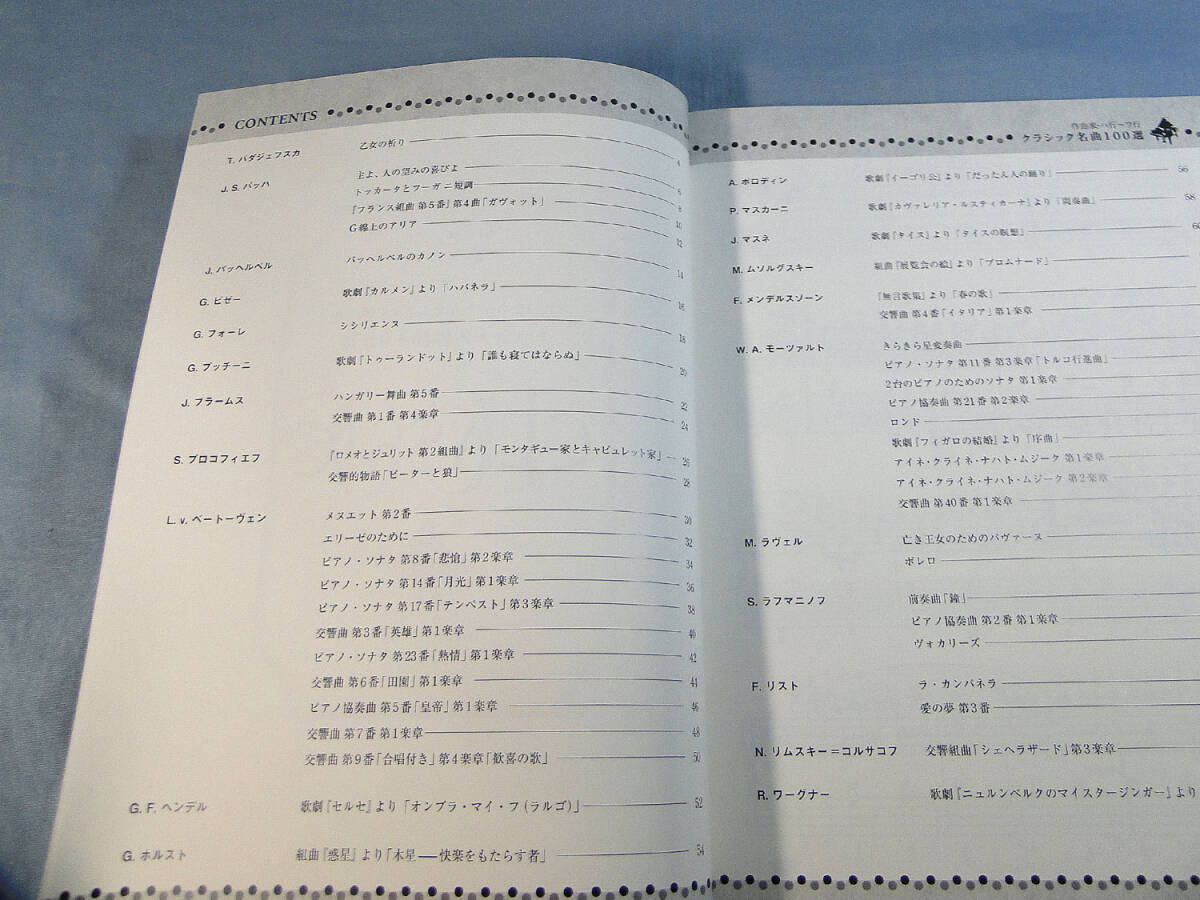 CONTENTS
T. バダジェフスカ 乙女の祈り 4
J. S. バッハ 主よ、人の望みの喜びよ 6
トッカータとフーガ ニ短調 8
『フランス組曲 第5番』第4曲「ガヴォット」 10
G線上のアリア 12
J. パッヘルベル パッヘルベルのカノン 14
G. ビゼー 歌劇『カルメン』より「ハバネラ」 16
G. フォーレ シシリエンヌ 18
G. プッチーニ 歌劇『トゥーランドット』より「誰も寝てはならぬ」 20
J. ブラームス ハンガリー舞曲 第5番 22
交響曲 第1番 第4楽章 24
S. プロコフィエフ 『ロメオとジュリット 第2組曲』より「モンタギュー家とキャピュレット家」 26
交響的物語「ピーターと狼」 28
L. v. ベートーヴェン メヌエット 第2番 30
エリーゼのために 32
ピアノ・ソナタ 第8番「悲愴」第2楽章 34
ピアノ・ソナタ 第14番「月光」第1楽章 36
ピアノ・ソナタ 第17番「テンペスト」第3楽章 38
交響曲 第3番「英雄」第1楽章 40
ピアノ・ソナタ 第23番「熱情」第1楽章 42
交響曲 第6番「田園」第1楽章 44
ピアノ協奏曲 第5番「皇帝」第1楽章 46
交響曲 第7番 第1楽章 48
交響曲 第9番「合唱付き」第4楽章「歓喜の歌」 50
G. F. ヘンデル 歌劇『セルセ』より「オンブラ・マイ・フ(ラルゴ)」 52
G. ホルスト 組曲『惑星』より「木星―快楽をもたらす者」 54
作曲家・ハ行〜ワ行
クラシック名曲100選
A. ボロディン 歌劇『イーゴリ公』より「だったん人の踊り」 56
P. マスカーニ 歌劇『カヴァレリア・ルスティカーナ』より「間奏曲」 58
J. マスネ 歌劇『タイス』より「タイスの瞑想」 60
M. ムソルグスキー 組曲『展覧会の絵』より「プロムナード」
F. メンデルスゾーン 『無言歌集』より「春の歌」
交響曲 第4番「イタリア」第1楽章
W. A. モーツァルト きらきら星変奏曲
ピアノ・ソナタ 第11番 第3楽章「トルコ行進曲」
2台のピアノのためのソナタ 第1楽章
ピアノ協奏曲 第21番 第2楽章
ロンド
歌劇『フィガロの結婚』より「序曲」
アイネ・クライネ・ナハト・ムジーク 第1楽章
アイネ・クライネ・ナハト・ムジーク 第2楽章
交響曲 第40番 第1楽章
M. ラヴェル 亡き王女のためのパヴァーヌ
ボレロ
S. ラフマニノフ 前奏曲「鐘」
ピアノ協奏曲 第2番 第1楽章
ヴォカリーズ
F. リスト ラ・カンパネラ
愛の夢 第3番
N. リムスキー=コルサコフ 交響組曲「シェヘラザード」第3楽章
R. ワーグナー 歌劇『ニュルンベルクのマイスタージンガー』より